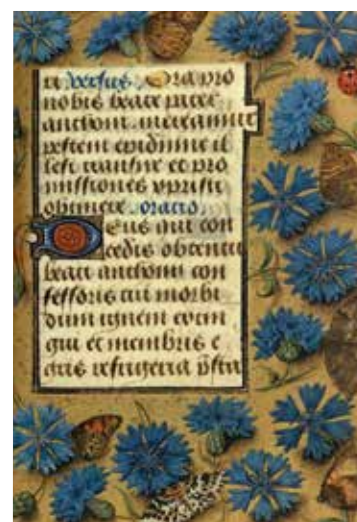 versus. Ora pro
nobis beate pater
anthoni mereamur
pestem epidimie il
lesi transire et pro
missiones xpristi
obtinere. oratio.
Deus qui con
cedis obtentu
beati anthonii con
fessoris tui morbi
dum ignem extin
gui et membris e
gris refrigeria